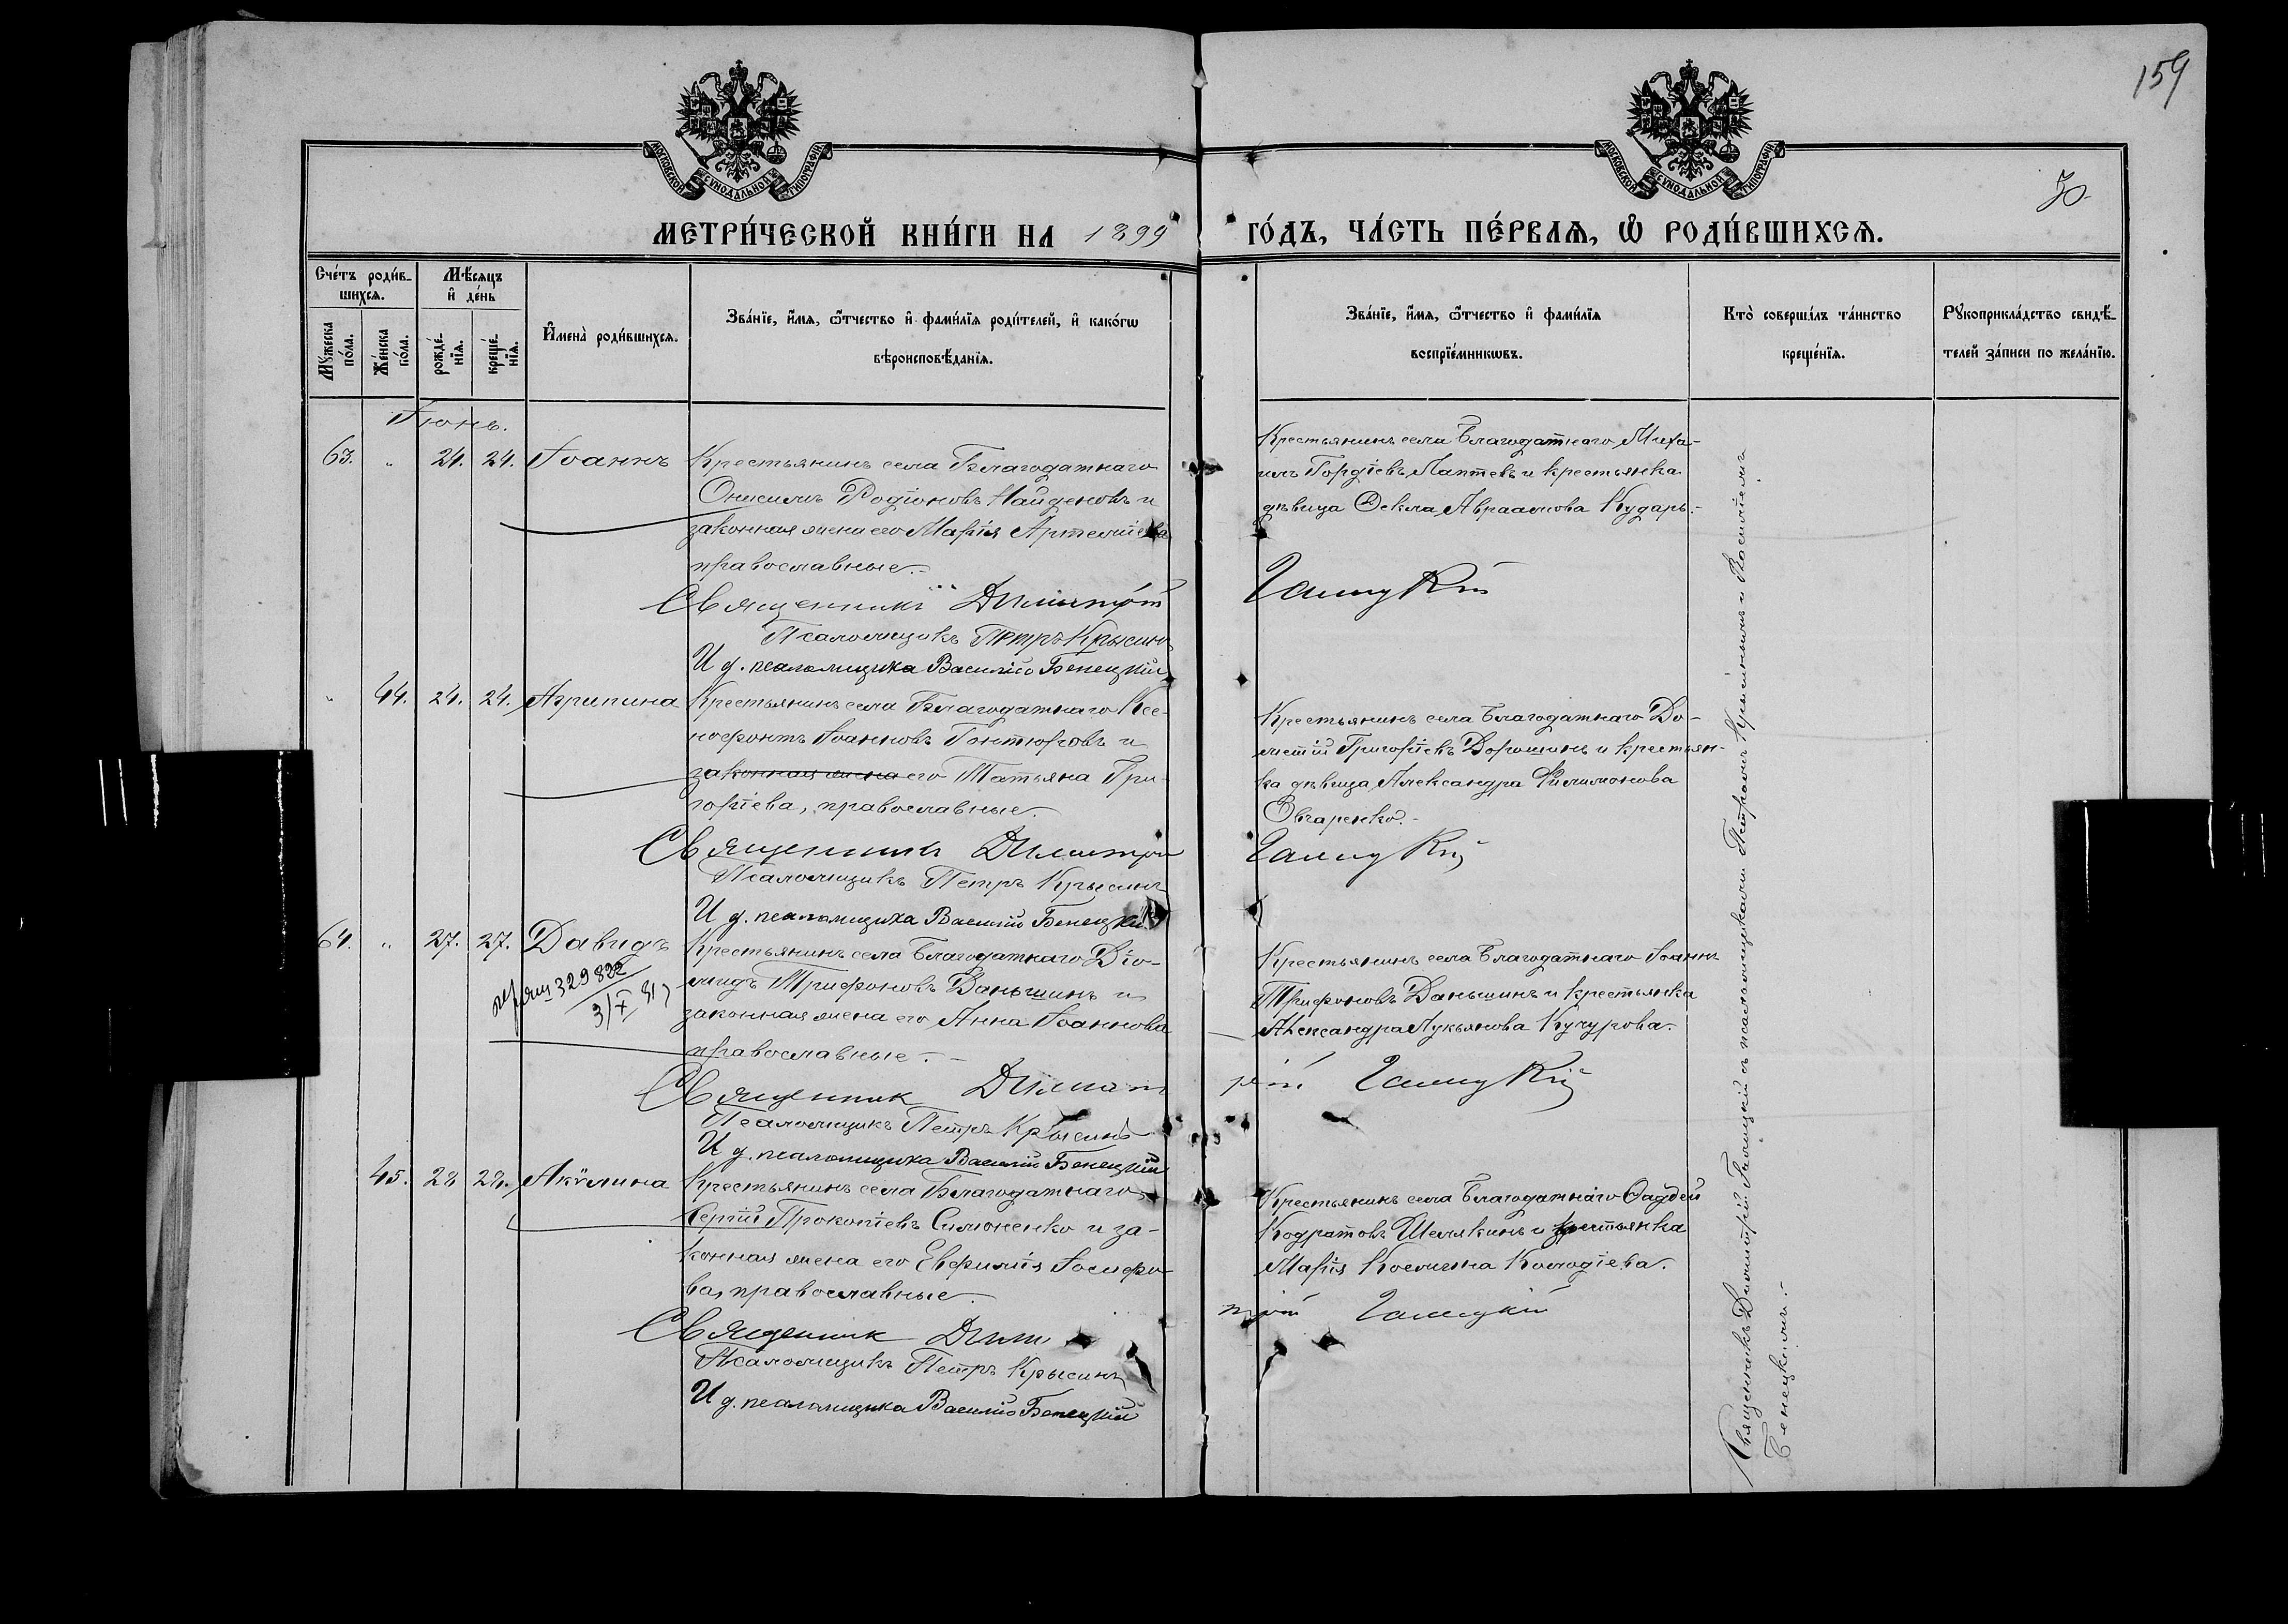 159
МОСКОВСКОЙ СУНОДАЛЬНОЙ ТИПОГРАФІИ
МОСКОВСКОЙ СУНОДАЛЬНОЙ ТИПОГРАФІИ
30
МЕТРИ́ЧЕСКОЙ КНИ́ГИ НА 1899
ГО́ДЪ, ЧА́СТЬ ПЕ́РВАѦ, Ѡ҆ РОДИ́ВШИХСѦ.
Сче́тъ роди́в-
шихсѧ.
Мѣ́сѧцъ
и҆ де́нь
Мꙋ́жеска
по́ла.
Же́нска
по́ла.
рожде́-
нїѧ.
креще́-
нїѧ.
И҆мена̀ роди́вшихсѧ.
Зва́нїе, и҆́мѧ, ѻ҆́тчество и҆ фами́лїѧ роди́телей, и҆ како́гѡ
вѣроисповѣ́данїѧ.
Зва́нїе, и҆́мѧ, ѻ҆́тчество и҆ фами́лїѧ
воспрїе́мникѡвъ.
Кто̀ соверша́лъ та́инство
креще́нїѧ.
Рꙋкоприкла́дство свидѣ́-
телей за́писи по жела́нїю.
Іюнь.
63. " 24. 24. Іоаннъ
Крестьянинъ села Благодатнаго
Онисимъ Родіоновъ Найденовъ и
законная жена его Марія Артеміева
православные.
Священникъ Димитрій
Галицкій
Псаломщикъ Петръ Крысинъ
И д. псаломщика Василій Бенецкій
Крестьянинъ села Благодатнаго Миха-
илъ Гордіевъ Лаптевъ и крестьянка
дѣвица Ѳекла Авраамова Кударь.-
" 44. 24. 24. Агрипина
Крестьянинъ села Благодатнаго Ксе-
нофонтъ Іоанновъ Гонтюровъ и
законная жена его Татьяна Гри-
горіева, православные.
Священникъ Димитрій
Галицкій
Псаломщикъ Петръ Крысинъ
И д. псаломщика Василій Бенецкій
Крестьянинъ села Благодатнаго До-
метій Григоріевъ Дорошинъ и крестьян-
ка дѣвица Александра Филимонова
Звгаренко.-
64. " 27. 27. Давидъ
329822
3/X
Крестьянинъ села Благодатнаго Діо-
мидъ Трифоновъ Даньшинъ и
законная жена его Анна Іоаннова
православные.-
Священник Димит
рій Галицкій
Псаломщикъ Петръ Крысинъ
И д. псаломщика Василій Бенецкій
Крестьянинъ села Благодатнаго Іоаннъ
Трифоновъ Даньшинъ и крестьянка
Александра Лукьянова Кучурова.
45. 28 28. Акѵлина
Крестьянинъ села Благодатнаго
Сергій Прокопіевъ Симоненко и за-
конная жена его Евфимія Іосифо-
ва, православные.
Священник Дими
трій Галицкій
Псаломщикъ Петръ Крысинъ
И д. псаломщика Василій Бенецкій
Крестьянинъ села Благодатнаго Ѳаддей
Кодратовъ Шемякинъ и крестьянка
Марія Косьмина Колодіева.
Священникъ Димитрій Галицкій съ псаломщиками Петромъ Крысинымъ и Василіемъ
Бенецкимъ.-